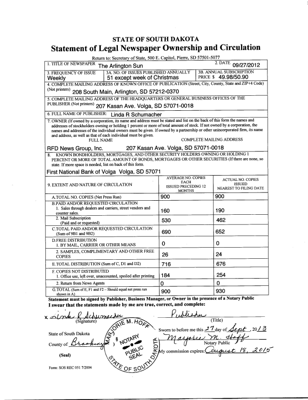 STATE OF SOUTH DAKOTA
Statement of Legal Newspaper Ownership and Circulation
Return to: Secretary of State, 500 E. Capitol, Pierre, SD 57501-5077
1. TITLE OF NEWSPAPER The Arlington Sun
2. DATE 09/27/2012
3. FREQUENCY OF ISSUE Weekly
3A. NO. OF ISSUES PUBLISHED ANNUALLY 51 except week of Christmas
3B. ANNUAL SUBSCRIPTION PRICE $ 49.98/50.90
4. COMPLETE MAILING ADDRESS OF KNOWN OFFICE OF PUBLICATION (Street, City, County, State and ZIP+4 Code)
(Not printers) 208 South Main, Arlington, SD 57212-0370
5. COMPLETE MAILING ADDRESS OF THE HEADQUARTERS OF GENERAL BUSINESS OFFICES OF THE
PUBLISHER (Not printers) 207 Kasan Ave. Volga, SD 57071-0018
6. FULL NAME OF PUBLISHER: Linda R Schumacher
7. OWNER (If owned by a corporation, its name and address must be stated and
FULL NAME COMPLETE MAILING ADDRESS
RFD News Group, Inc. 207 Kasan Ave. Volga, SD 57071-0018
8. KNOWN BONDHOLDERS, MORTGAGEES, AND OTHER SECURITY HOLDERS OWNING OR HOLDING 1
PERCENT OR MORE OF TOTAL AMOUNT OF BONDS, MORTGAGES OR OTHER SECURITIES (If there are none, so
state. If more space is needed, list on back of this form.
First National Bank of Volga Volga, SD 57071
9. EXTENT AND NATURE OF CIRCULATION
AVERAGE NO. COPIES EACH ISSUED PRECEDING 12 MONTHS
ACTUAL NO. COPIES ISSUED NEAREST TO FILING DATE
A. TOTAL NO. COPIES (Net Press Run) 900 900
B. PAID AND/OR REQUESTED CIRCULATION
1. Sales through dealers and carriers, street vendors and
counter sales 160 190
2. Mail Subscription
(Paid and or requested) 530 462
C. TOTAL PAID AND/OR REQUESTED CIRCULATION
(Sum of 9B1 and 9B2) 690 652
D. FREE DISTRIBUTION
1. BY MAIL, CARRIER OR OTHER MEANS 0 0
2. SAMPLES, COMPLIMENTARY AND OTHER FREE
COPIES 26 24
E. TOTAL DISTRIBUTION (Sum of C, D1 and D2) 716 676
F. COPIES NOT DISTRIBUTED
1. Office use, left over, unaccounted, spoiled after printing 184 254
2. Return from News Agents 0 0
G. TOTAL (Sum of E, F1 and F2 - Should equal net press run
shown in A.) 900 930
Statement must be signed by Publisher, Business Manager, or Owner in the presence of a Notary Public
I swear that the statements made by me are true, correct, and complete:
Linda R Schumacher Publisher
(Signature) (Title)
State of South Dakota
County of Brookings
(Seal)
MARJORIE M. HOFF
NOTARY PUBLIC
SEAL
STATE OF SOUTH DAKOTA
Sworn to before me this 27 day of Sept, 2012
Marjorie M. Hoff
Notary Public
My commission expires August 19, 2015
Form: SDS REC 051 7/2004